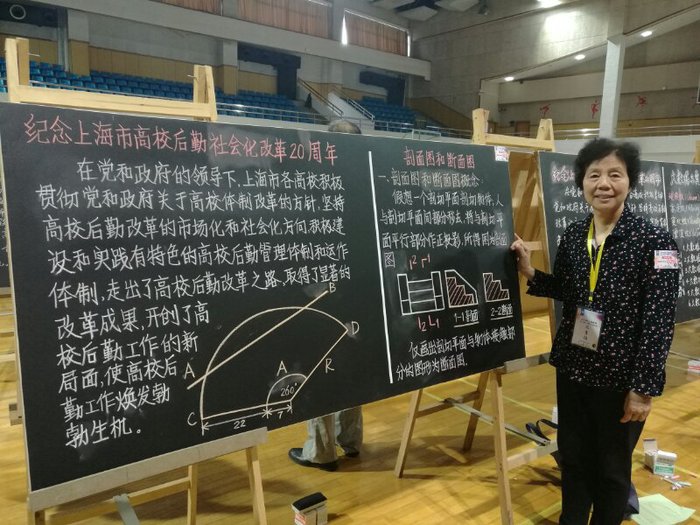 纪念上海市高校后勤社会化改革20周年
在党和政府的领导下,上海市各高校积极
贯彻党和政府关于高校体制改革的方针,坚持
高校后勤改革的市场化和社会化方向,积极建
设和实践有特色的高校后勤管理体制和运作
体制,走出了高校后勤改革之路,取得了显著的
改革成果,开创了高
校后勤工作的新
局面,使高校后
勤工作焕发勃
勃生机。
B
D
A
A
R
260°
C
22
7
剖面图和断面图
一、剖面图和断面图概念
假想一个剖切平面剖切物体,人
与剖切平面间部分移去,将与剖切平
面平行部分作正投影,所得图为剖面
图
1-1剖面
2-2断面
仅画出剖切平面与物体接触部
分的图形为断面图。